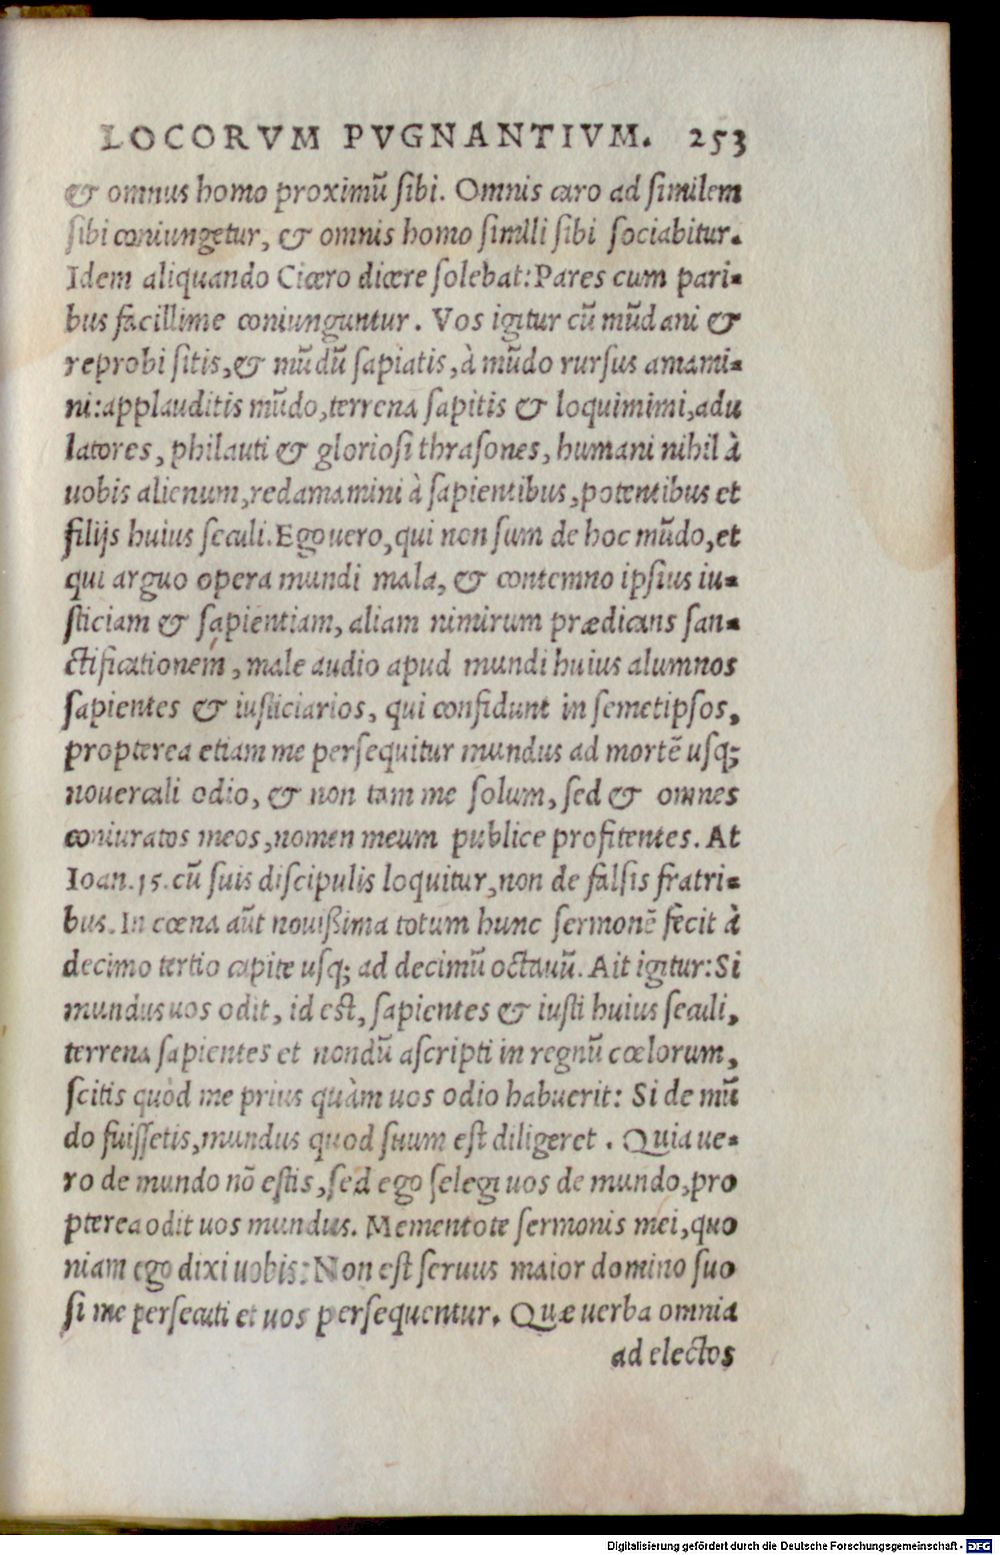 LOCORVM PVGNANTIVM. 253
& omnus homo proximū sibi. Omnis caro ad similem
sibi coniungetur, & omnis homo simili sibi sociabitur.
Idem aliquando Cicero dicere solebat: Pares cum pari-
bus facillime coniunguntur. Vos igitur cū mūdani &
reprobi sitis, & mūdū sapiatis, à mūdo rursus amami-
ni: applauditis mūdo, terrena sapitis & loquimimi, adu
latores, philauti & gloriosi thrasones, humani nihil à
uobis alienum, redamamini à sapientibus, potentibus et
filijs huius seculi. Ego uero, qui non sum de hoc mūdo, et
qui arguo opera mundi mala, & contemno ipsius iu-
sticiam & sapientiam, aliam nimirum prædicans san-
ctificationem, male audio apud mundi huius alumnos
sapientes & iusticiarios, qui confidunt in semetipsos,
propterea etiam me persequitur mundus ad mortē usq;
nouercali odio, & non tam me solum, sed & omnes
coniuratos meos, nomen meum publice profitentes. At
Ioan. 15. cū suis discipulis loquitur, non de falsis fratri-
bus. In cœna aūt nouißima totum hunc sermonē fecit à
decimo tertio capite usq; ad decimū octauū. Ait igitur: Si
mundus uos odit, id est, sapientes & iusti huius seculi,
terrena sapientes et nondū ascripti in regnū cœlorum,
scitis quòd me prius quàm uos odio habuerit: Si de mū
do fuissetis, mundus quod suum est diligeret. Quia ue-
ro de mundo nō estis, sed ego selegi uos de mundo, pro
pterea odit uos mundus. Mementote sermonis mei, quo
niam ego dixi uobis: Non est seruus maior domino suo
si me persecuti et uos persequentur. Quæ uerba omnia
ad electos
Digitalisierung gefördert durch die Deutsche Forschungsgemeinschaft - DFG